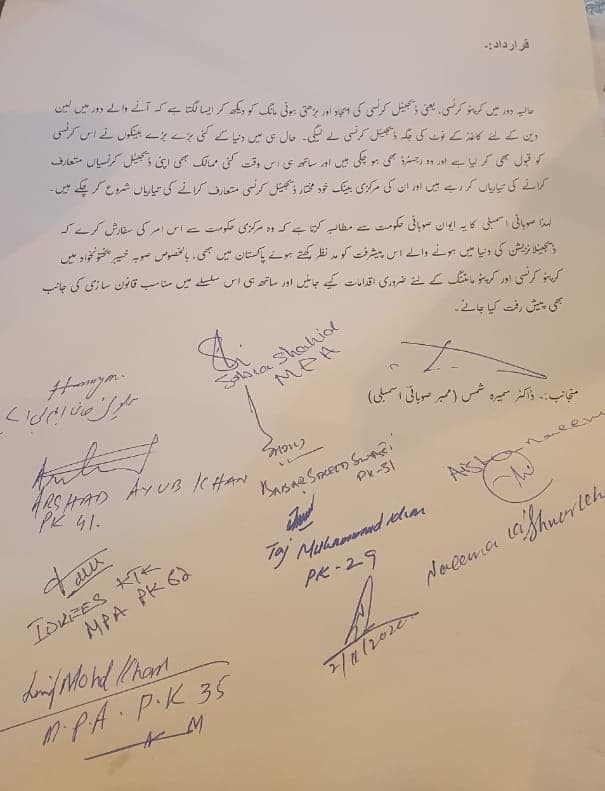 قرارداد:.
حالیہ دور میں کرپٹو کرنسی۔ یعنی ڈیجیٹل کرنسی کی ایجاد اور بڑھتی ہوئی مانگ کو دیکھ کر ایسا لگتا ہے کہ آنے والے دور میں لین
دین کے لئے کاغذ کے نوٹ کی جگہ ڈیجیٹل کرنسی لے لیگی۔ حال ہی میں دنیا کے کئی بڑے بڑے بینکوں نے اس کرنسی
کو قبول بھی کر لیا ہے اور وہ رجسٹرڈ بھی ہو چکی ہیں اور ساتھ ہی اس وقت کئی ممالک بھی اپنی ڈیجیٹل کرنسیاں متعارف
کرانے کی تیاریاں کر رہے ہیں اور ان کی مرکزی بینک خود مختار ڈیجیٹل کرنسی متعارف کرانے کی تیاریاں شروع کر چکے ہیں۔
لہذا صوبائی اسمبلی کا یہ ایوان صوبائی حکومت سے مطالبہ کرتا ہے کہ وہ مرکزی حکومت سے اس امر کی سفارش کرے کہ
ڈیجیٹلائزیشن کی دنیا میں ہونے والے اس پیشرفت کو مد نظر رکھتے ہوے پاکستان میں بھی۔ بالخصوص صوبہ خیبر پختونخواہ میں
کرپٹو کرنسی اور کرپٹو مائننگ کے لئے ضروری اقدامات کیے جائیں اور ساتھ ہی اس سلسلے میں مناسب قانون سازی کی جانب
بھی پیش رفت کیا جائے۔
Sobia Shahid
MPA
منجانب:۔ ڈاکٹر سمیرہ شمس (ممبر صوبائی اسمبلی)
Humayun
ARSHAD AYUB KHAN
PK 41.
BABAR SALEEM SWATI
PK-31
Taj Muhammad Khan
PK-29
Naeema Kishwer Khan
IDREES KTK
MPA PK 62
2/11/2020
Mohd Khan
M.P.A. P.K 35